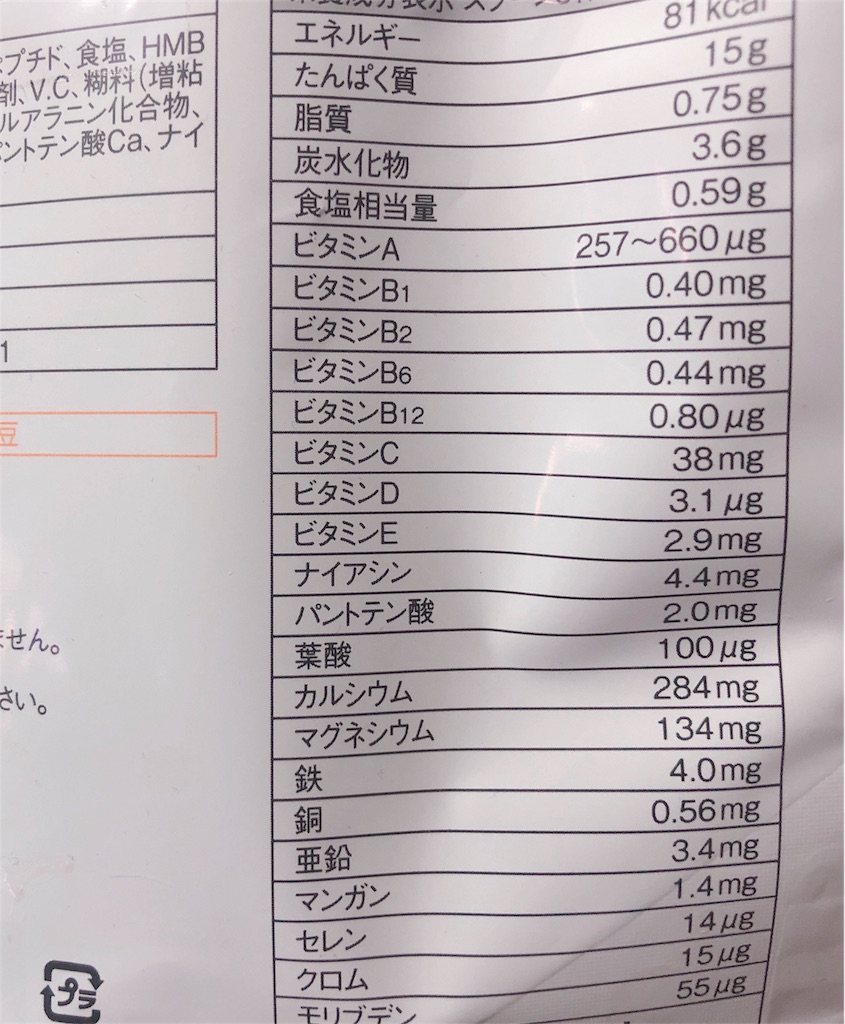 プチド、食塩、HMB
剤、V.C、糊料(増粘
ルアラニン化合物、
ントテン酸Ca、ナイ
1
豆
せん。
さい。
プラ
エネルギー 81kcal
たんぱく質 15g
脂質 0.75g
炭水化物 3.6g
食塩相当量 0.59g
ビタミンA 257〜660μg
ビタミンB1 0.40mg
ビタミンB2 0.47mg
ビタミンB6 0.44mg
ビタミンB12 0.80μg
ビタミンC 38mg
ビタミンD 3.1μg
ビタミンE 2.9mg
ナイアシン 4.4mg
パントテン酸 2.0mg
葉酸 100μg
カルシウム 284mg
マグネシウム 134mg
鉄 4.0mg
銅 0.56mg
亜鉛 3.4mg
マンガン 1.4mg
セレン 14μg
クロム 15μg
モリブデン 55μg